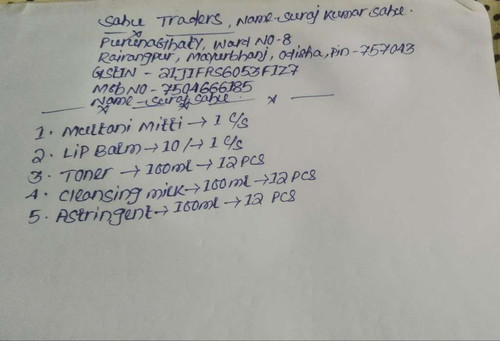 Sahu Traders, Name-Suraj Kumar Sahu.
Purunasthaty, Ward No-8
Rairangpur, Mayurbhanj, Odisha, Pin-757043
GSTIN - 21JIFRS6053F1Z7
Mob No-7504666185
Name-Suraj Sahu.
1. Multani Mitti → 1 c/s
2. Lip Balm → 10/- → 1 c/s
3. Toner → 100ml → 12 pcs
4. Cleansing milk → 100ml → 12 pcs
5. Astringent → 100ml → 12 pcs